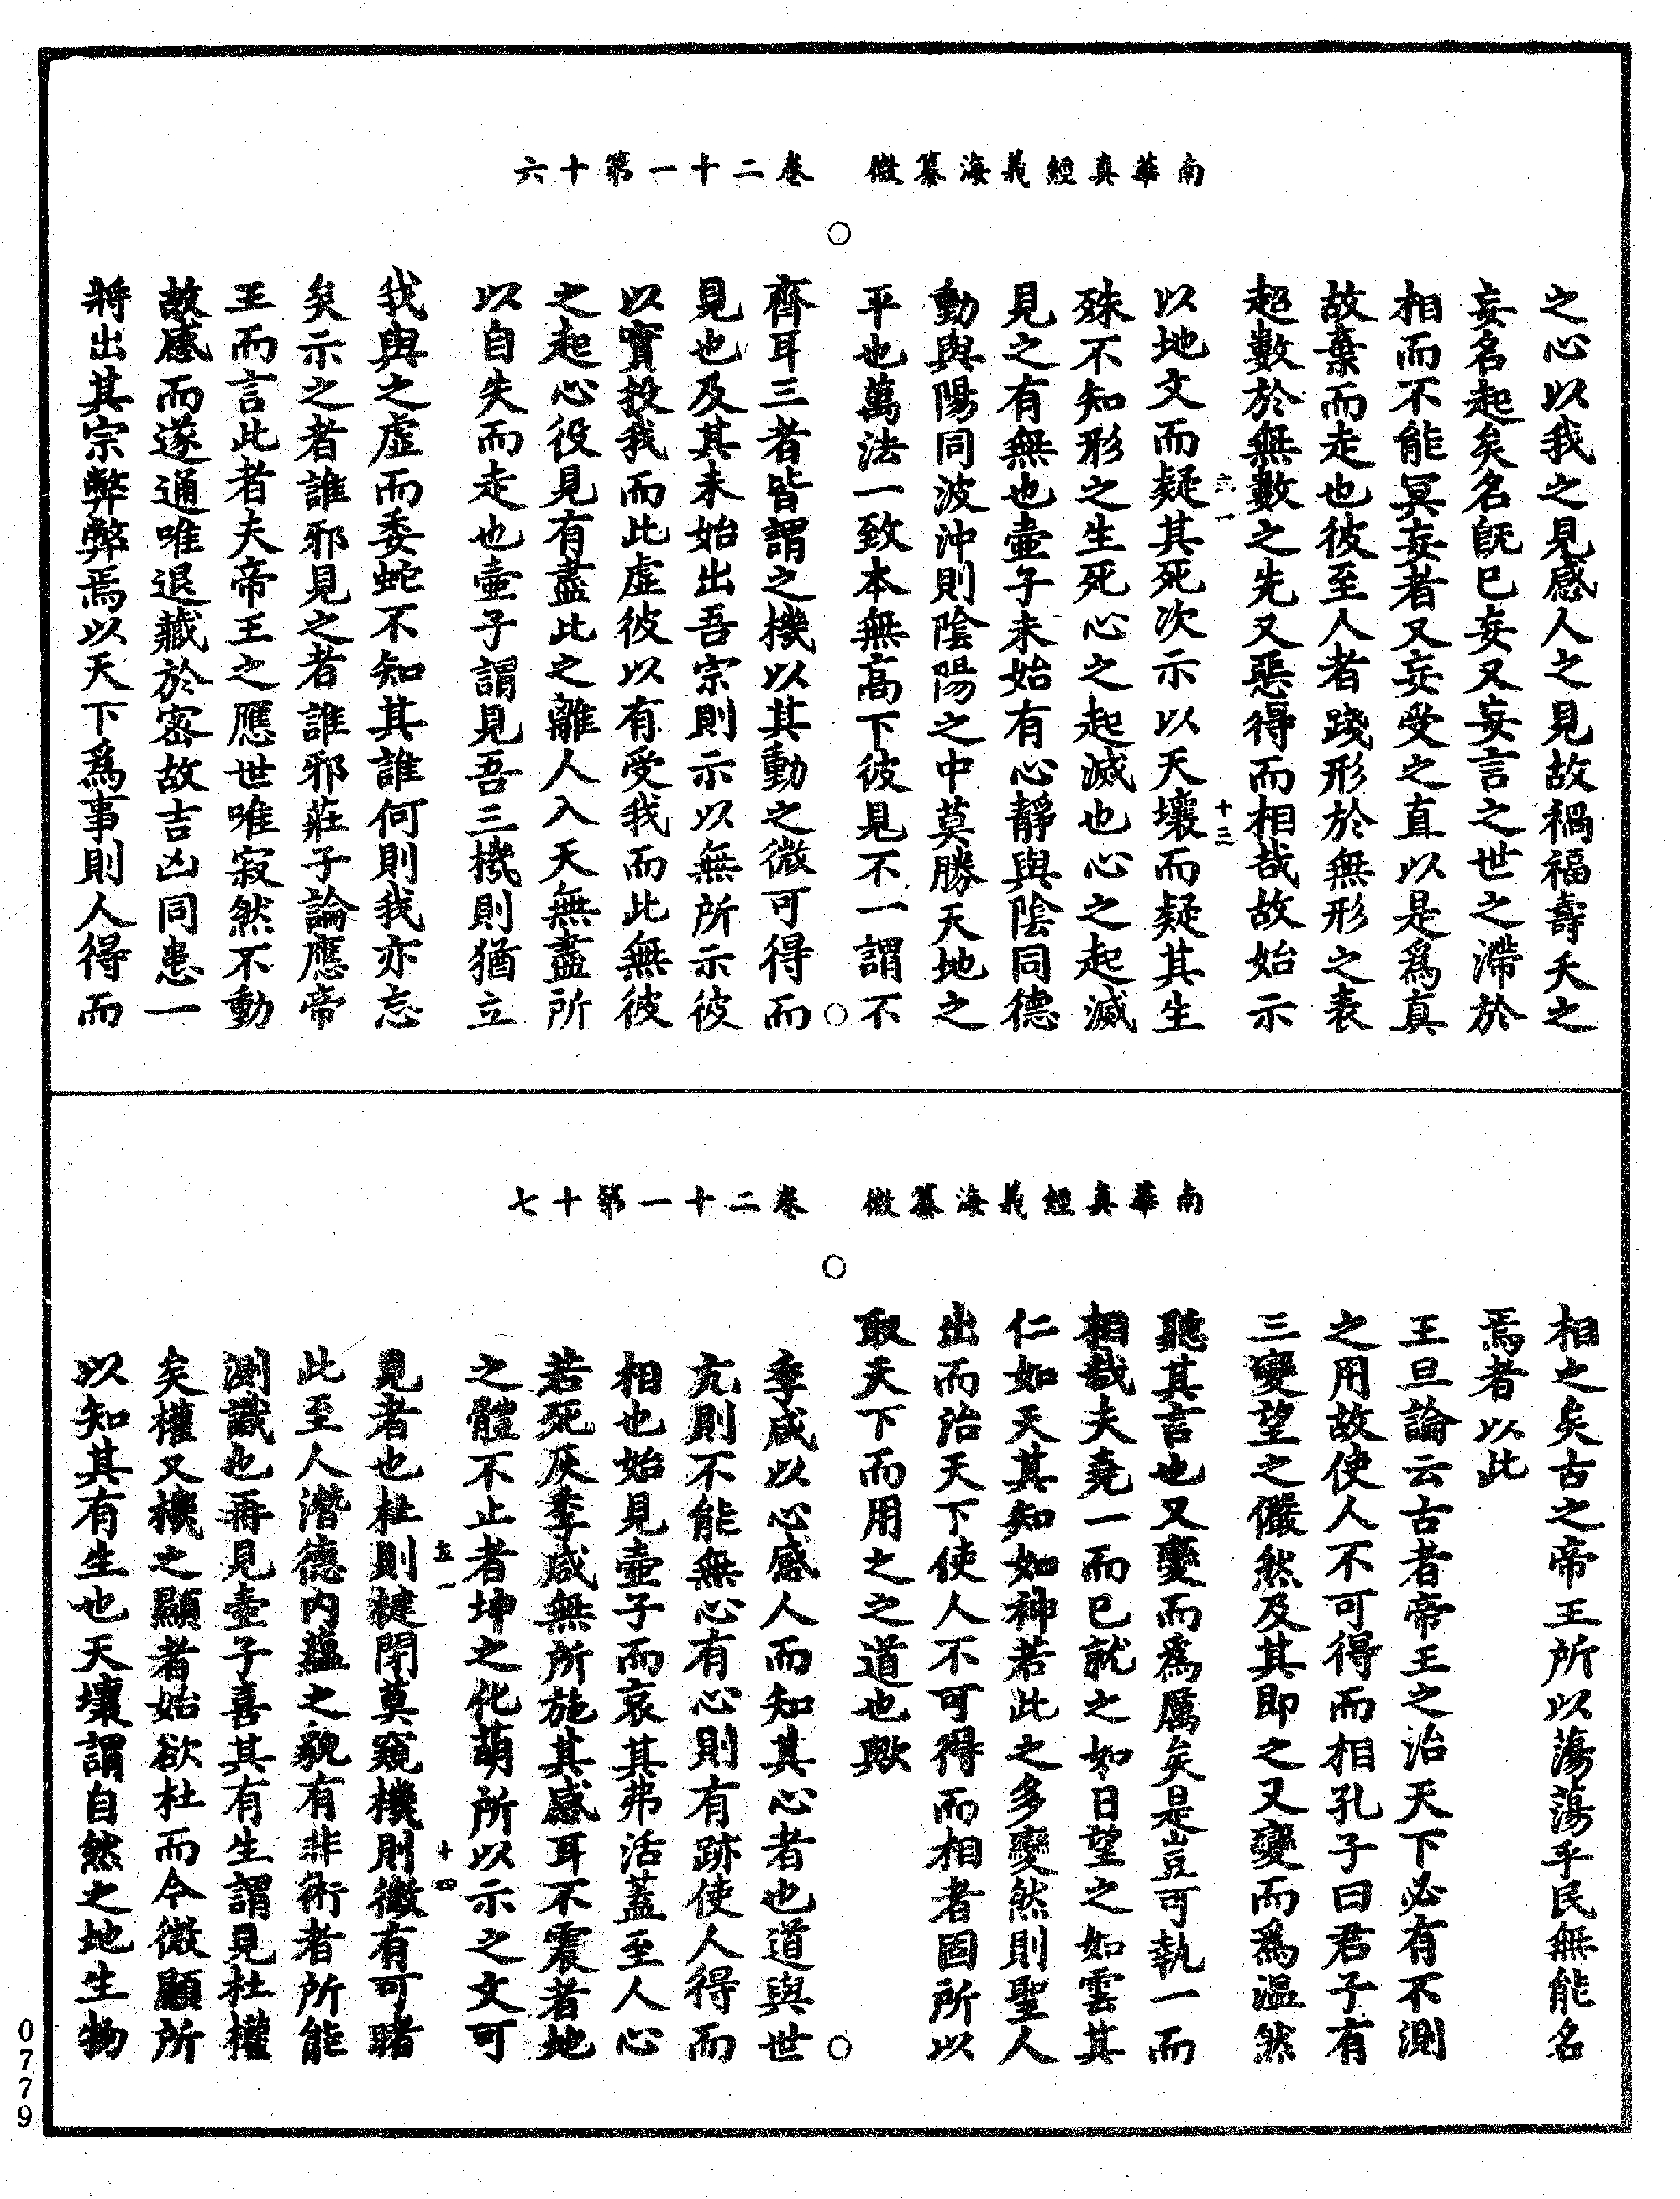 南華真經義海纂微　卷二十一第十六
之心以我之見感人之見故禍福壽夭之
妄名起矣名旣已妄又妄言之世之滯於
相而不能冥妄者又妄受之直以是爲真
故棄而走也彼至人者踐形於無形之表
超數於無數之先又惡得而相哉故始示
十三
以地文而疑其死次示以天壤而疑其生
殊不知形之生死心之起滅也心之起滅
見之有無也壷子未始有心靜與陰同德
動與陽同波沖則陰陽之中莫勝天地之
平也萬法一致本無高下彼見不一謂不
齊耳三者皆謂之機以其動之微可得而
見也及其未始出吾宗則示以無所示彼
以實投我而此虛彼以有受我而此無彼
之起心役見有盡此之離人入天無盡所
以自失而走也壷子謂見吾三機則猶立
我與之虛而委蛇不知其誰何則我亦忘
矣示之者誰邪見之者誰邪莊子論應帝
王而言此者夫帝王之應世唯寂然不動
故感而遂通唯退藏於密故吉凶同患一
將出其宗弊弊焉以天下爲事則人得而
南華真經義海纂微　卷二十一第十七
相之矣古之帝王所以蕩蕩乎民無能名
焉者以此
王旦論云古者帝王之治天下必有不測
之用故使人不可得而相孔子曰君子有
三變望之儼然及其即之又變而爲温然
聽其言也又變而爲厲矣是豈可執一而
相哉夫堯一而已就之如日望之如雲其
仁如天其知如神若此之多變然則聖人
出而治天下使人不可得而相者固所以
取天下而用之之道也歟
季咸以心感人而知其心者也道與世
亢則不能無心有心則有跡使人得而
相也始見壷子而哀其弗活蓋至人心
若死灰季咸無所施其感耳不震者地
之體不止者坤之化萌所以示之文可
五一
十四
見者也杜則楗閉莫窺機則微有可睹
此至人潛德內蘊之貌有非術者所能
測識也再見壷子喜其有生謂見杜權
矣權又機之顯者始欲杜而今微顯所
以知其有生也天壤謂自然之地生物
0779